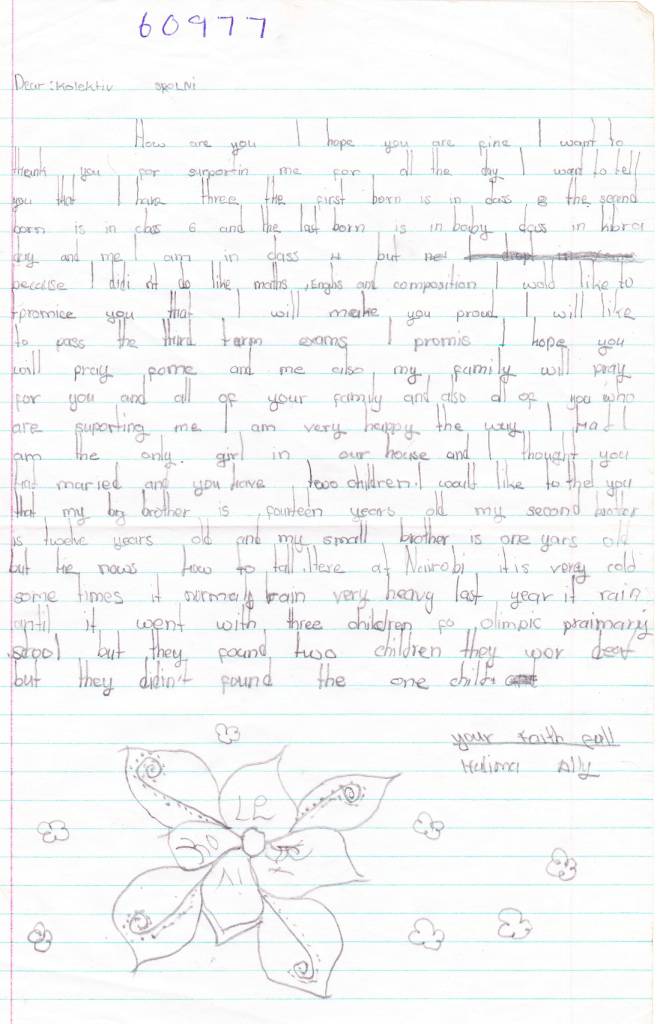 60977
Dear : Kolektiv SPOLNI
How are you I hope you are fine I want to
thank you for supportin me for all the day I want to tell
you that I have three the first born is in class 8 the second
born is in class 6 and the last born is in baby class in hibra
day and me I am in class 4 but
because I didi nt do like maths , Englis and composition I wold like to
promice you that I will make you proud I will like
to pass the third term exams I promis I hope you
will pray forme and me also my family will pray
for you and all of your family and also all of you who
are suporting me I am very happy the way I had I
am the only girl in our house and I thought you
had maried and you have two children. I would like to thel you
that my big brother is fourteen years old my second brother
is twelve years old and my small brother is one yars old
but he nows how to tall. Here at Nairobi it is very cold
some times it normaly rain very heavy last year it rain
until it went with three children fo olimpic praimary
scool but they found two children they wor deat
but they didin't found the one child
your faith full
Halima Ally